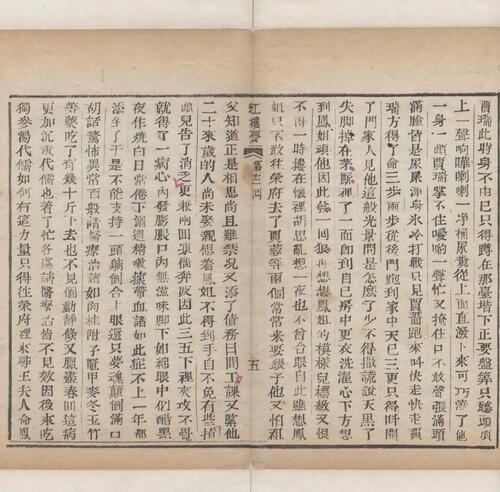 賈瑞此時身不由己只得蹲在那臺堦下正要盤算只聽頭頂
上一聲响嘩喇喇一凈桶尿糞從上面直潑下來可巧澆了他
一身一頭賈瑞掌不住噯喲一聲忙又掩住口不敢聲張滿頭
滿臉皆是尿屎渾身氷冷打戰只見賈薔跑來叫快走快走賈
瑞方得了命三步兩步從後門跑到家中天已三更只得叫開
了門家人見他這般光景問是怎麼了少不得撒謊說天黑了
失脚掉在茅厠裡了一面即到自己房中更衣洗濯心下方想
到鳳姐頑他因此發一回狠再想想鳳姐的模樣兒標緻又恨
不得一時摟在懷裡胡思亂想一夜也不曾合眼自此雖想鳳
姐只不敢往榮府去了賈蓉等兩個常常來要銀子他又怕祖
紅樓夢 第十二回 五
父知道正是相思尚且難禁况又添了債務日間工課又緊他
二十來歲的人尚未娶親想着鳳姐不得到手自不免有些
頭兒告了消乏更兼兩回凍惱奔波因此三五下裡夾攻不覺
就得了一病心內發膨脹口內無滋味脚下如綿眼中似醋黑
夜作燒白日常倦下溺遺精嗽痰帶血諸如此症不上一年都
添全了于是不能支持一頭躺倒合上眼還只夢魂顛倒滿口
胡話驚怖異常百般請醫療治諸如肉桂附子鱉甲麥冬玉竹
等藥吃了有幾十斤下去也不見個動靜倐又臘盡春回這病
更加沉重代儒也着了忙各處請醫療治皆不見効因後來吃
獨參湯代儒如何有這力量只得往榮府裡來尋王夫人命鳳